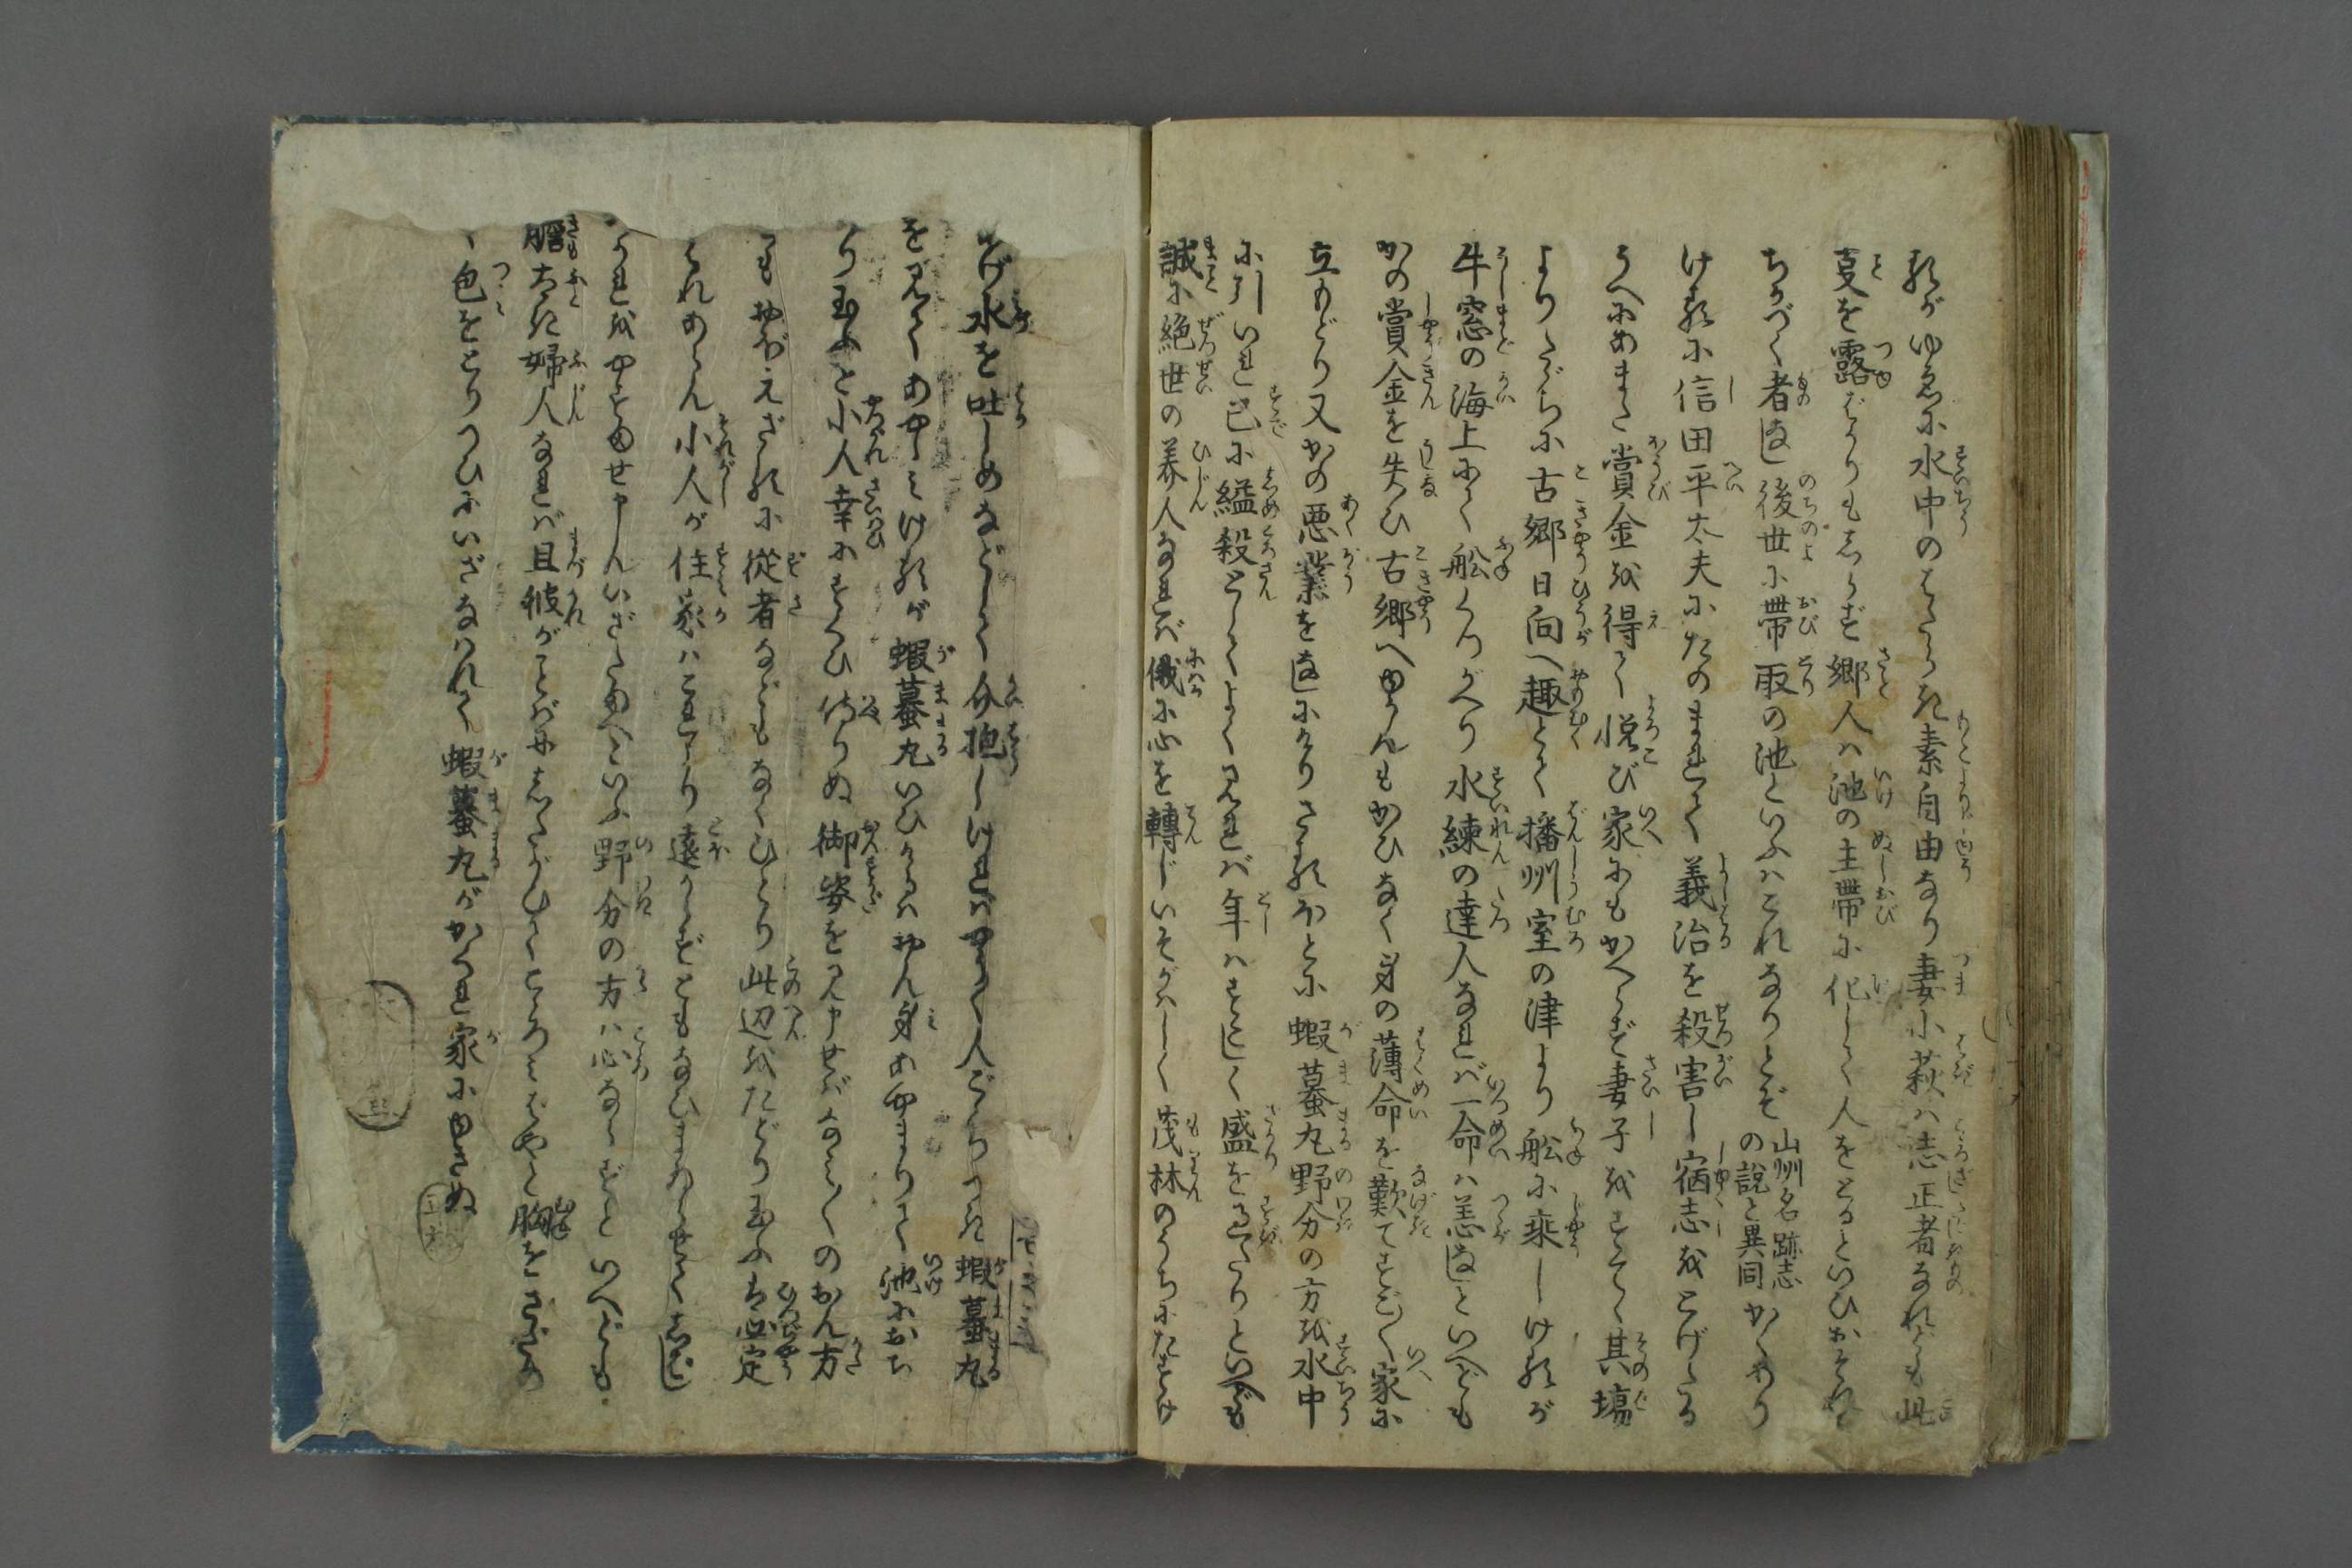 るがゆゑに水中のはたらき素自由なり妻小萩ハ志正者なれども此
事を露ばかりもしらず郷人ハ池の主帯に化して人をとるといひおそれ
ちかづく者なし後世に帯取の池といふハこれなりとぞ山州名跡志の説と異同かくあり
けるに信田平太夫にたのまれて義治を殺害し宿志をとげたる
うへにあまた賞金を得て悦び家にもかへらず妻子をすてて其場
よりたゞちに古郷日向へ趣とて播州室の津より舩に乗しけるが
牛窓の海上にて舩くつがへり水練の達人なれバ一命ハ恙なしといへども
かの賞金を失ひ古郷へゆかんもかひなく身の薄命を歎てすごく家に
立もどり又かの悪業をなしにけりさるほどに蝦蟇丸野分の方を水中
に引いれ已に縊殺としてよく見れバ年ハすこして盛を過たりといへども
誠に絶世の美人なれバ俄に心を轉じいそがハしく茂林のうちにたすけ
あげ水を吐しめなどして介抱しけれバやうやく人ごゝちつき蝦蟇丸
を見てあやしみけるが蝦蟇丸いひけるハおん身あやまりて池におち
り玉ふと小人幸にすくひ侍りぬ御姿を見申せバなみ〳〵のおん方
とも おぼえざるに從者などもなくひとり此辺をたどり玉ふハ必定
これあらん小人が住家ハこれより遠からずともなひまゐらせてしばし
つかれをやすめせ申んいざたまへといふ野分の方ハ心ならずといへども
膽太き婦人なれバ且彼がことばにしたがひてこゝろみばやと胸をさだめ
、色をとりつくひにいざなハれて蝦蟇丸がかくれ家にゆきぬ